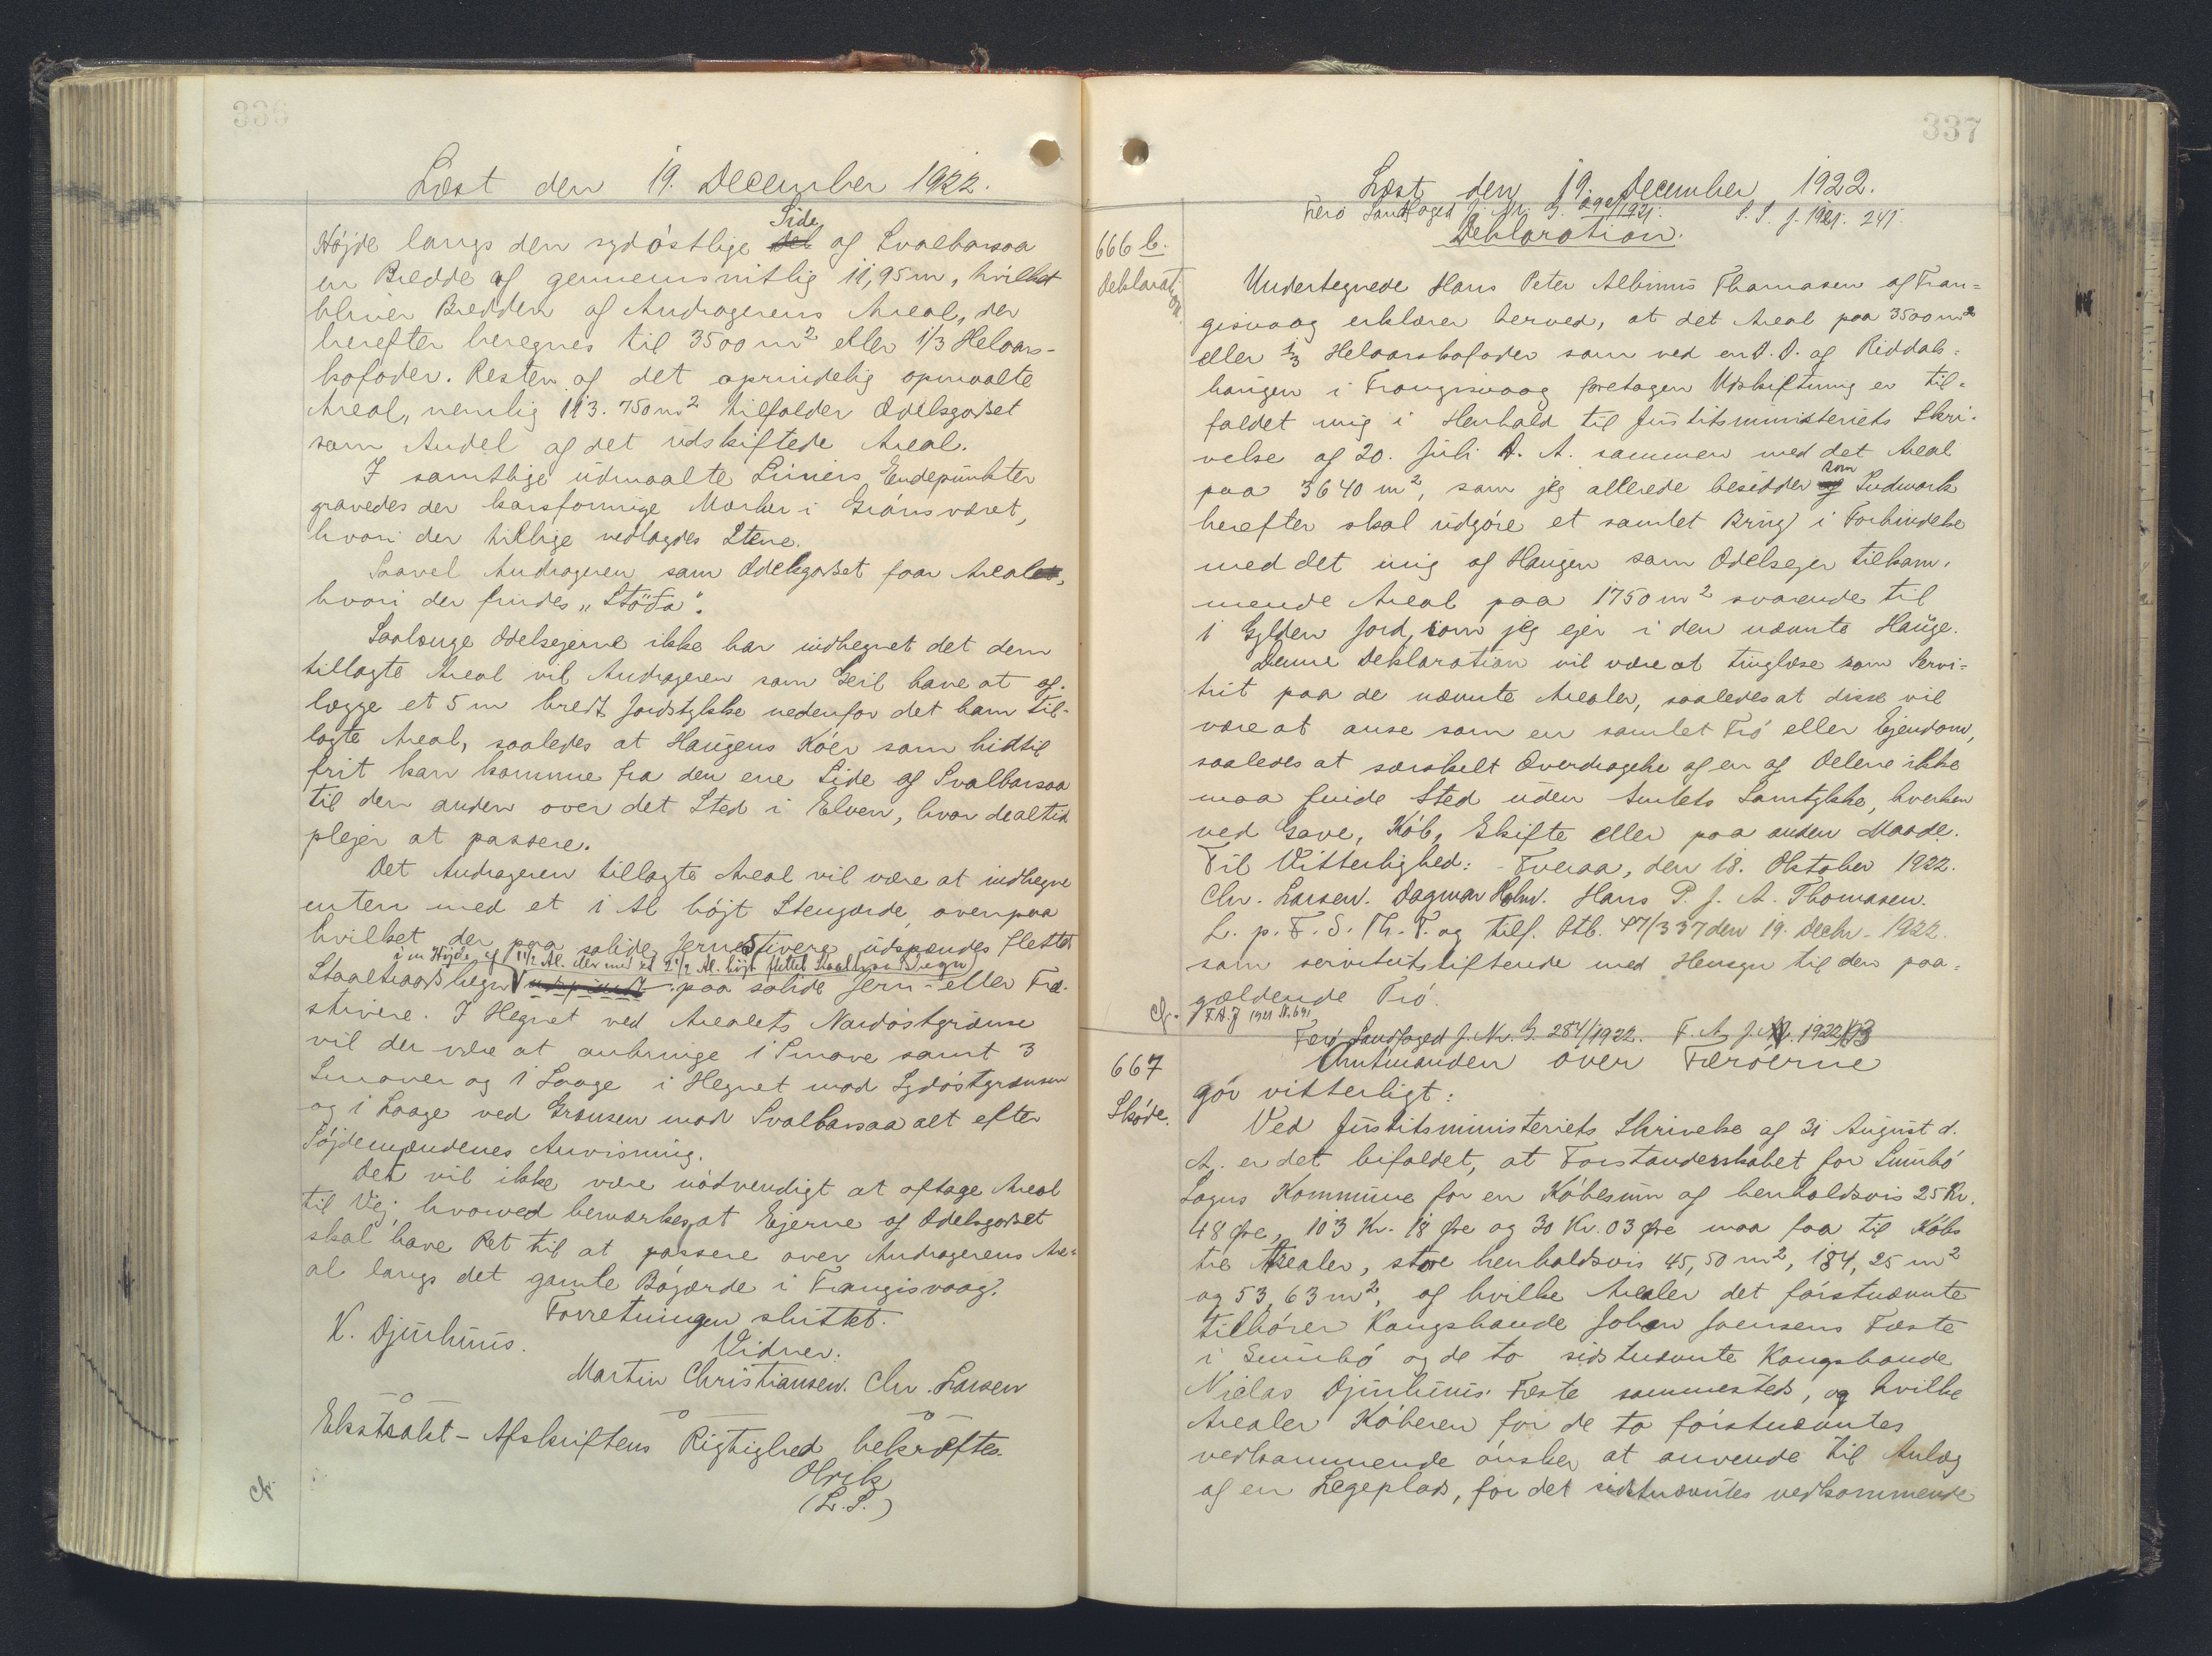 336
Læst den 19. December 1922.
Højde langs den sydøstlige Side af Svalbarsaa
en Bredde af gennemsnitlig 11,95 m, hvilket
bliver Bredden af Andragerens Areal, der
herefter beregnes til 3500 m² eller 1/3 Helaars-
kofoder. Resten af det oprindelig opmaalte
Areal, nemlig 113.750 m² tilfalder Odelsgodset
som Andel af det udskiftede Areal.
I samtlige udmaalte Liniers Endepunkter
gravedes der korsformige Mærker i Grønsværet,
hvori der tillige nedlagdes Stene.
Saavel Andrageren som Odelsgodset faar Areal,
hvori der findes "Støða".
Saalænge Odelsejerne ikke har indhegnet det dem
tillagte Areal vil Andrageren som Geil have at af-
lægge et 5 m bredt Jordstykke nedenfor det ham til-
lagte Areal, saaledes at Haugens Køer som hidtil
frit kan komme fra den ene Side af Svalbarsaa
til den anden over det Sted i Elven, hvor de altid
plejer at passere.
Det Andrageren tillagte Areal vil være at indhegne
enten med et 1 Al højt Stengærde, ovenpaa
hvilket der paa solide Jernstivere udspændes flettet
i en Højde af 1 1/2 Al. eller med et 2 1/2 Al. højt flettet Staaltraadshegn
Staaltraadshegn paa solide Jern- eller Træ-
stivere. I Hegnet ved Arealets Nordøstgrænse
vil der være at anbringe 1 Smave samt 3
Smaver og 1 Laage i Hegnet mod Sydøstgrænsen
og 1 Laage ved Grænsen mod Svalbarsaa alt efter
Søjdemændenes Anvisning.
Det vil ikke være nødvendigt at aftage Areal
til Vej, hvorved bemærkes, at Ejerne af Odelsgodset
skal have Ret til at passere over Andragerens Are-
al langs det gamle Bøgærde i Trangisvaag.
Forretningen sluttet.
K. Djurhuus.
Vidner:
Martin Christiansen. Chr. Larsen
Ekstrakt-Afskriftens Rigtighed bekræftes.
Olrik
(L.S.)
cf.
337
Læst den 19. December 1922.
Færø Landfoged J. Nr. G. /1921. S. S. J. 1921. 241.
666 b. Deklaration.
Deklaration.
Undertegnede Hans Peter Albinus Thomasen af Tran-
gisvaag erklærer herved, at det Areal paa 3500 m²
eller 1/3 Helaarskofoder som ved en D. D. af Riddals-
haugen i Trongisvaag foretagen Udskiftning er til-
faldet mig i Henhold til Justitsministeriets Skri-
velse af 20. Juli d. A. sammen med det Areal
paa 3640 m², som jeg allerede besidder som Indmark
herefter skal udgøre et samlet Brug i Forbindelse
med det mig af Haugen som Odelsejer tilkom-
mende Areal paa 1750 m² svarende til
1 Gylden Jord, som jeg ejer i den nævnte Hauge.
Denne Deklaration vil være at tinglæse som Servi-
tut paa de nævnte Arealer, saaledes at disse vil
være at anse som en samlet Trø eller Ejendom,
saaledes at særskilt Overdragelse af en af Delene ikke
maa finde Sted uden Amtets Samtykke, hverken
ved Gave, Køb, Skifte eller paa anden Maade.
Til Vitterlighed: Tveraa, den 18. Oktober 1922.
Chr. Larsen. Dagmar Holm. Hans P. J. A. Thomasen.
L. p. F. S. Th. T. og tilf. Otb. 47/337 den 19. Decbr. 1922.
som servitutstiftende med Hensyn til den paa-
gældende Trø.
cf. F.A.J 1921 N. 691
Færø Landfoged J. Nr. G. 284/1922. F. A. J. N. 1922/193
667 Skøde.
Amtmanden over Færøerne
gør vitterligt:
Ved Justitsministeriets Skrivelse af 31 August d.
A. er det bifaldet, at Forstanderskabet for Sumbø
Sogns Kommune for en Købesum af henholdsvis 25 Kr.
48 Øre, 103 Kr. 18 Øre og 30 Kr. 03 Øre maa faa til Købs
tre Arealer, store henholdsvis 45,50 m², 184,25 m²
og 53,63 m², af hvilke Arealer det førstnævnte
tilhører Kongsbonde Johan Joensens Fæste
i Sumbø og de to sidstnævnte Kongsbonde
Niclas Djurhuus' Fæste sammesteds, og hvilke
Arealer Køberen for de to førstnævntes
vedkommende ønsker at anvende til Anlæg
af en Legeplads, for det sidstnævntes vedkommende